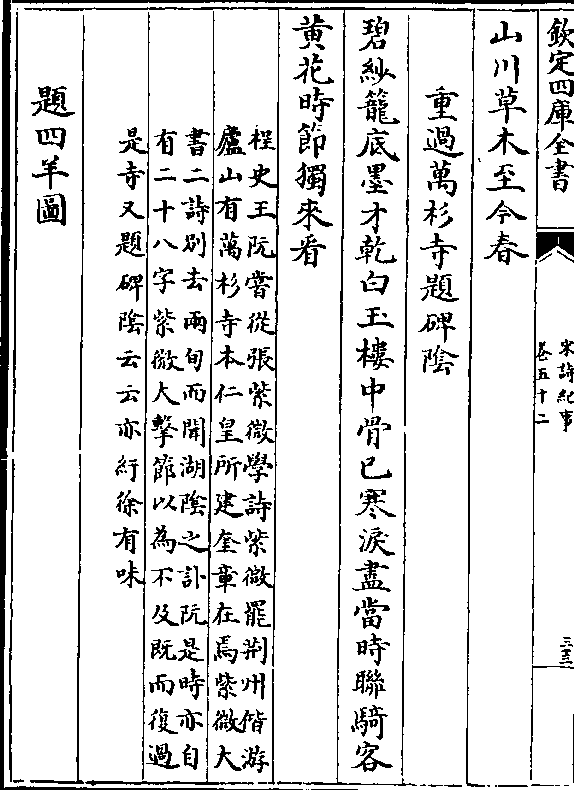 欽定四庫全書
宋詩紀事
卷五十二
三三
山川草木至今春
重過萬杉寺題碑陰
碧紗籠底墨才乾白玉樓中骨已寒淚盡當時聯騎客
黄花時節獨來看
桯史王阮嘗從張紫微學詩紫微罷荆州偕游
廬山有萬杉寺本仁皇所建奎章在焉紫微大
書二詩别去兩旬而聞湖陰之訃阮是時亦自
有二十八字紫微大擊節以為不及既而復過
是寺又題碑陰云云亦紆徐有味
題四羊圖